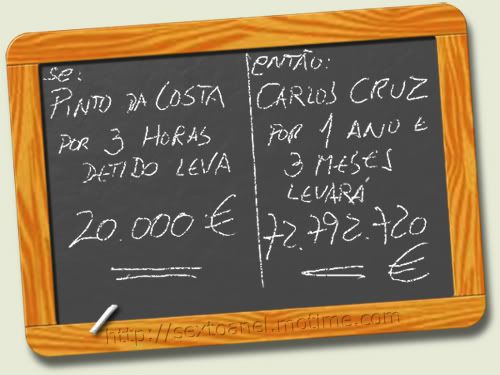 se:
PINTO DA COSTA
POR 3 HORAS
DETIDO LEVA
20.000 €
ENTÃO:
CARLOS CRUZ
POR 1 ANO E
3 MESES
LEVARÁ
72.792.720
€
http://sextoanel.motime.com